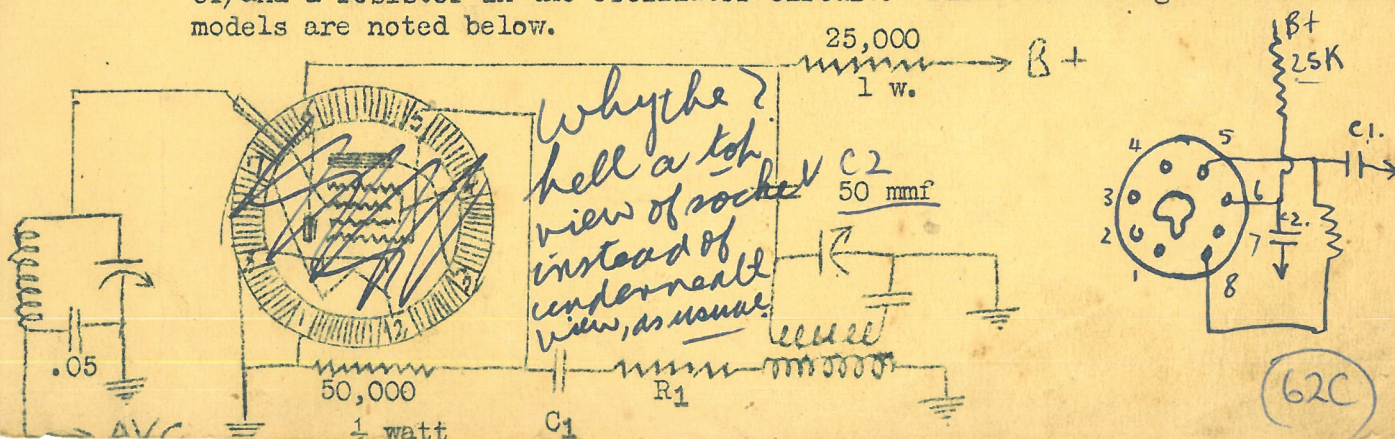 models are noted below.
25,000
1 w.
B+
Why the?
hell a top
view of socket
instead of
underneath
view, as usual?
C2
50 mmf
.05
50,000
½ watt
C1
R1
AVC
5
2
B+
25K
C1.
4
5
3
6
2
C2.
7
1
8
62C